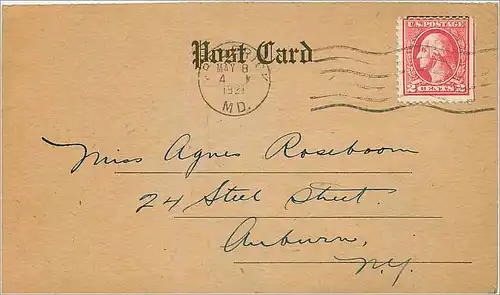 Post Card
MAY 8
4
1921
MD.
U.S. POSTAGE
2 CENTS 2
Miss Agnes Roseboom
24 Steel Street.
Auburn,
N.Y.